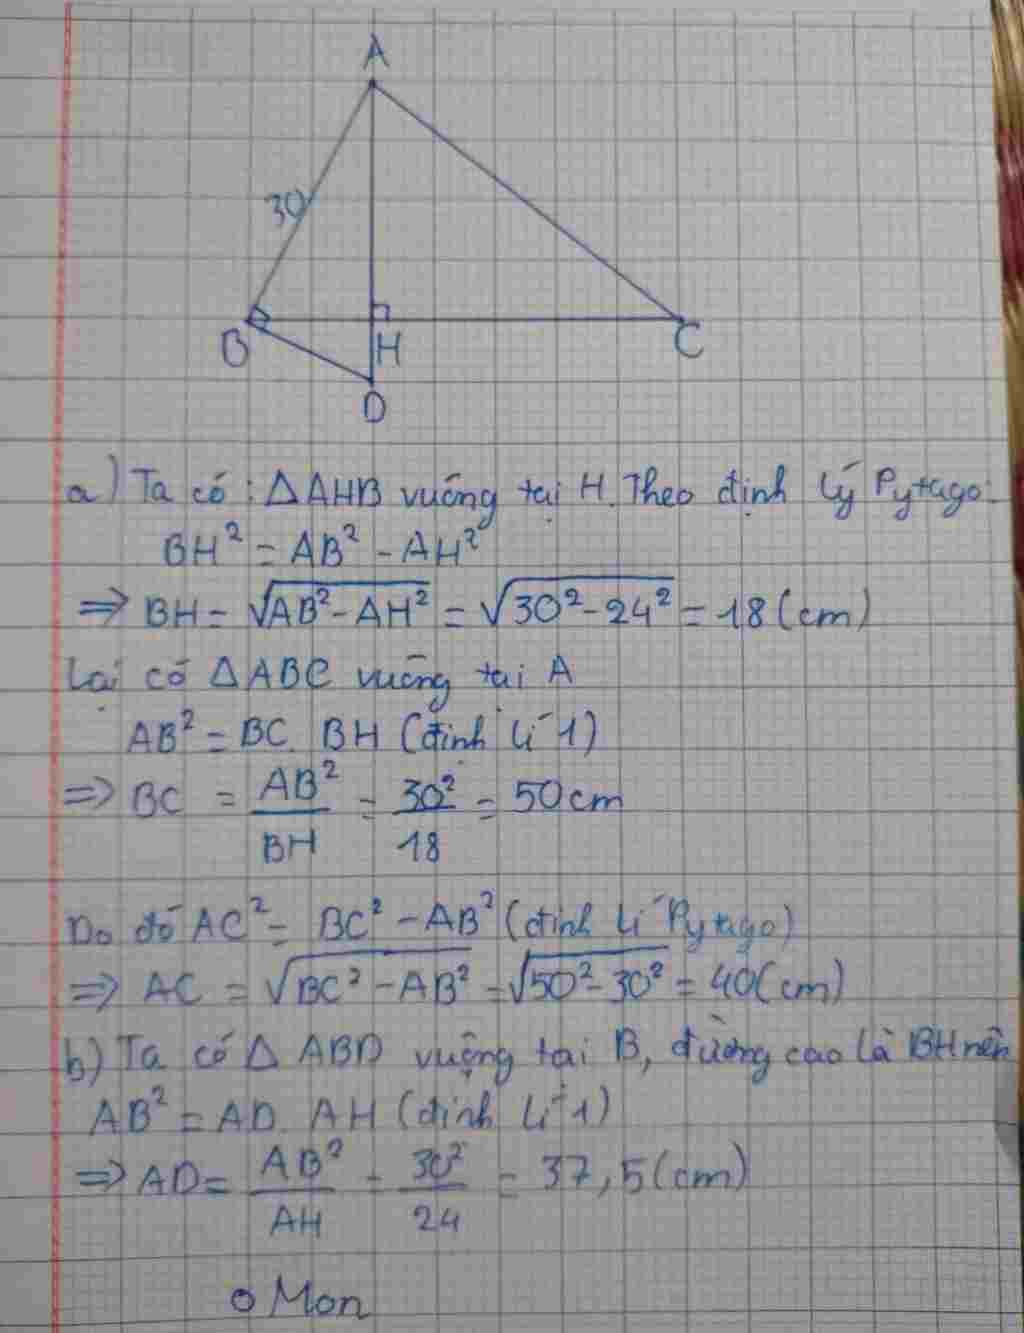 A
30
B
H
C
D
a) Ta có: ΔAHB vuông tại H. Theo định lý Pytago:
BH² = AB² - AH²
=> BH = √(AB² - AH²) = √(30² - 24²) = 18 (cm)
Lại có ΔABC vuông tại A
AB² = BC. BH (định lí 1)
=> BC = AB²/BH = 30²/18 = 50cm
Do đó AC² = BC² - AB² (định lí Pytago)
=> AC = √(BC² - AB²) = √(50² - 30²) = 40(cm)
b) Ta có Δ ABD vuông tại B, đường cao là BH nên
AB² = AD. AH (định lí 1)
=> AD = AB²/AH = 30²/24 = 37,5(cm)
Mon